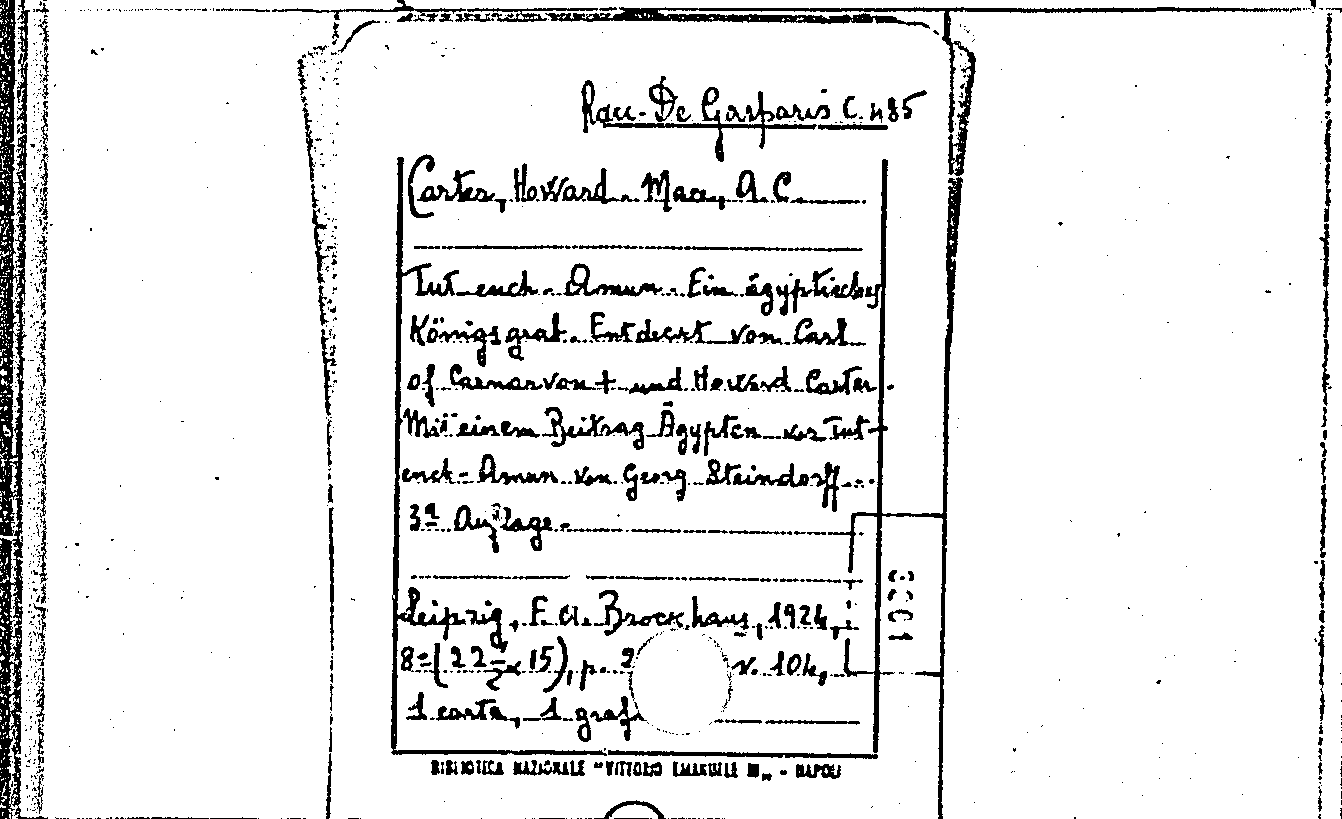 Rac. De Gasparis C. 485
Carter, Howard. Mace, A. C.
Tut-ench-Amun. Ein ägyptisches
Königsgrab. Entdeckt von Carl
of Carnarvon + und Howard Carter.
Mit einem Beitrag Ägypten vor Tut-
ench-Amun von Georg Steindorff...
3ª Auflage.
Leipzig, F. A. Brockhaus, 1924,
8º (22 ½ x 15), p. 2 v. 104,
1 carta, 1 graf
BIBLIOTECA NAZIONALE "VITTORIO EMANUELE III„ - NAPOLI